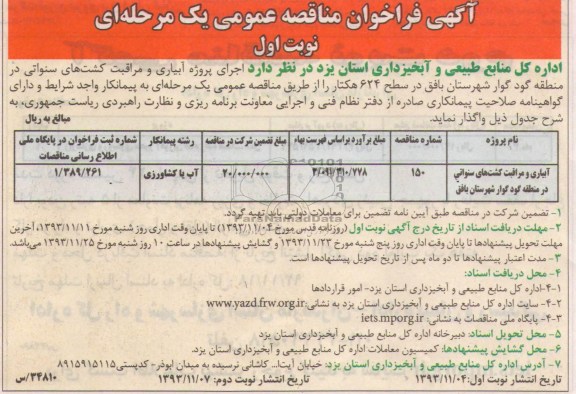 آگهی فراخوان مناقصه عمومی یک مرحله‌ای
نوبت اول
اداره کل منابع طبیعی و آبخیزداری استان یزد در نظر دارد اجرای پروژه آبیاری و مراقبت کشت‌های سنواتی در
منطقه گود گوار شهرستان بافق در سطح ۶۲۴ هکتار را از طریق مناقصه عمومی یک مرحله‌ای به پیمانکار واجد شرایط و دارای
گواهینامه صلاحیت پیمانکاری صادره از دفتر نظام فنی و اجرایی معاونت برنامه ریزی و نظارت راهبردی ریاست جمهوری، به
شرح جدول ذیل واگذار نماید.
مبالغ به ریال
نام پروژه شماره مناقصه مبلغ برآورد براساس فهرست بهاء مبلغ تضمین شرکت در مناقصه رشته پیمانکار شماره ثبت فراخوان در پایگاه ملی اطلاع رسانی مناقصات
آبیاری و مراقبت کشت‌های سنواتی ۱۵۰ ۳/۰۹۱/۳۱۰/۷۷۸ ۲۰۰/۰۰۰/۰۰۰ آب یا کشاورزی ۱/۳۸۹/۲۶۱
در منطقه گود گوار شهرستان بافق
ParsNamadData
۱- تضمین شرکت در مناقصه طبق آیین نامه تضمین برای معاملات دولتی باید تهیه گردد.
۲- مهلت دریافت اسناد از تاریخ درج آگهی نوبت اول (روزنامه قدس مورخ ۱۳۹۳/۱۱/۰۴) تا پایان وقت اداری روز شنبه مورخ ۱۳۹۳/۱۱/۱۱، آخرین
مهلت تحویل پیشنهادها تا پایان وقت اداری روز پنج شنبه مورخ ۱۳۹۳/۱۱/۲۳ و گشایش پیشنهادها در ساعت ۱۰ روز شنبه مورخ ۱۳۹۳/۱۱/۲۵ می‌باشد.
۳- مدت اعتبار پیشنهادها تا دو ماه پس از تاریخ تحویل پیشنهادها است.
۴- محل دریافت اسناد:
۴-۱-اداره کل منابع طبیعی و آبخیزداری استان یزد- امور قراردادها
۴-۲- سایت اداره کل منابع طبیعی و آبخیزداری استان یزد به نشانی: www.yazd.frw.org.ir
۴-۳- پایگاه ملی مناقصات به نشانی: iets.mporg.ir
۵- محل تحویل اسناد: دبیرخانه اداره کل منابع طبیعی و آبخیزداری استان یزد
۶- محل گشایش پیشنهادها: کمیسیون معاملات اداره کل منابع طبیعی و آبخیزداری استان یزد.
۷- آدرس اداره کل منابع طبیعی و آبخیزداری استان یزد: خیابان آیت‌ا... کاشانی نرسیده به میدان ابوذر- کدپستی ۸۹۱۵۹۱۵۱۱۵
تاریخ انتشار نوبت اول: ۱۳۹۳/۱۱/۰۴ تاریخ انتشار نوبت دوم: ۱۳۹۳/۱۱/۰۷ ۳۴۸۱۰/س